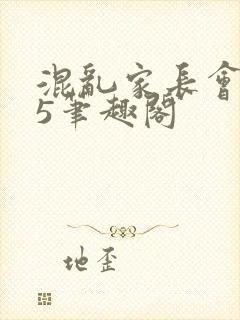 混亂家長會
5筆趣閣
地歪